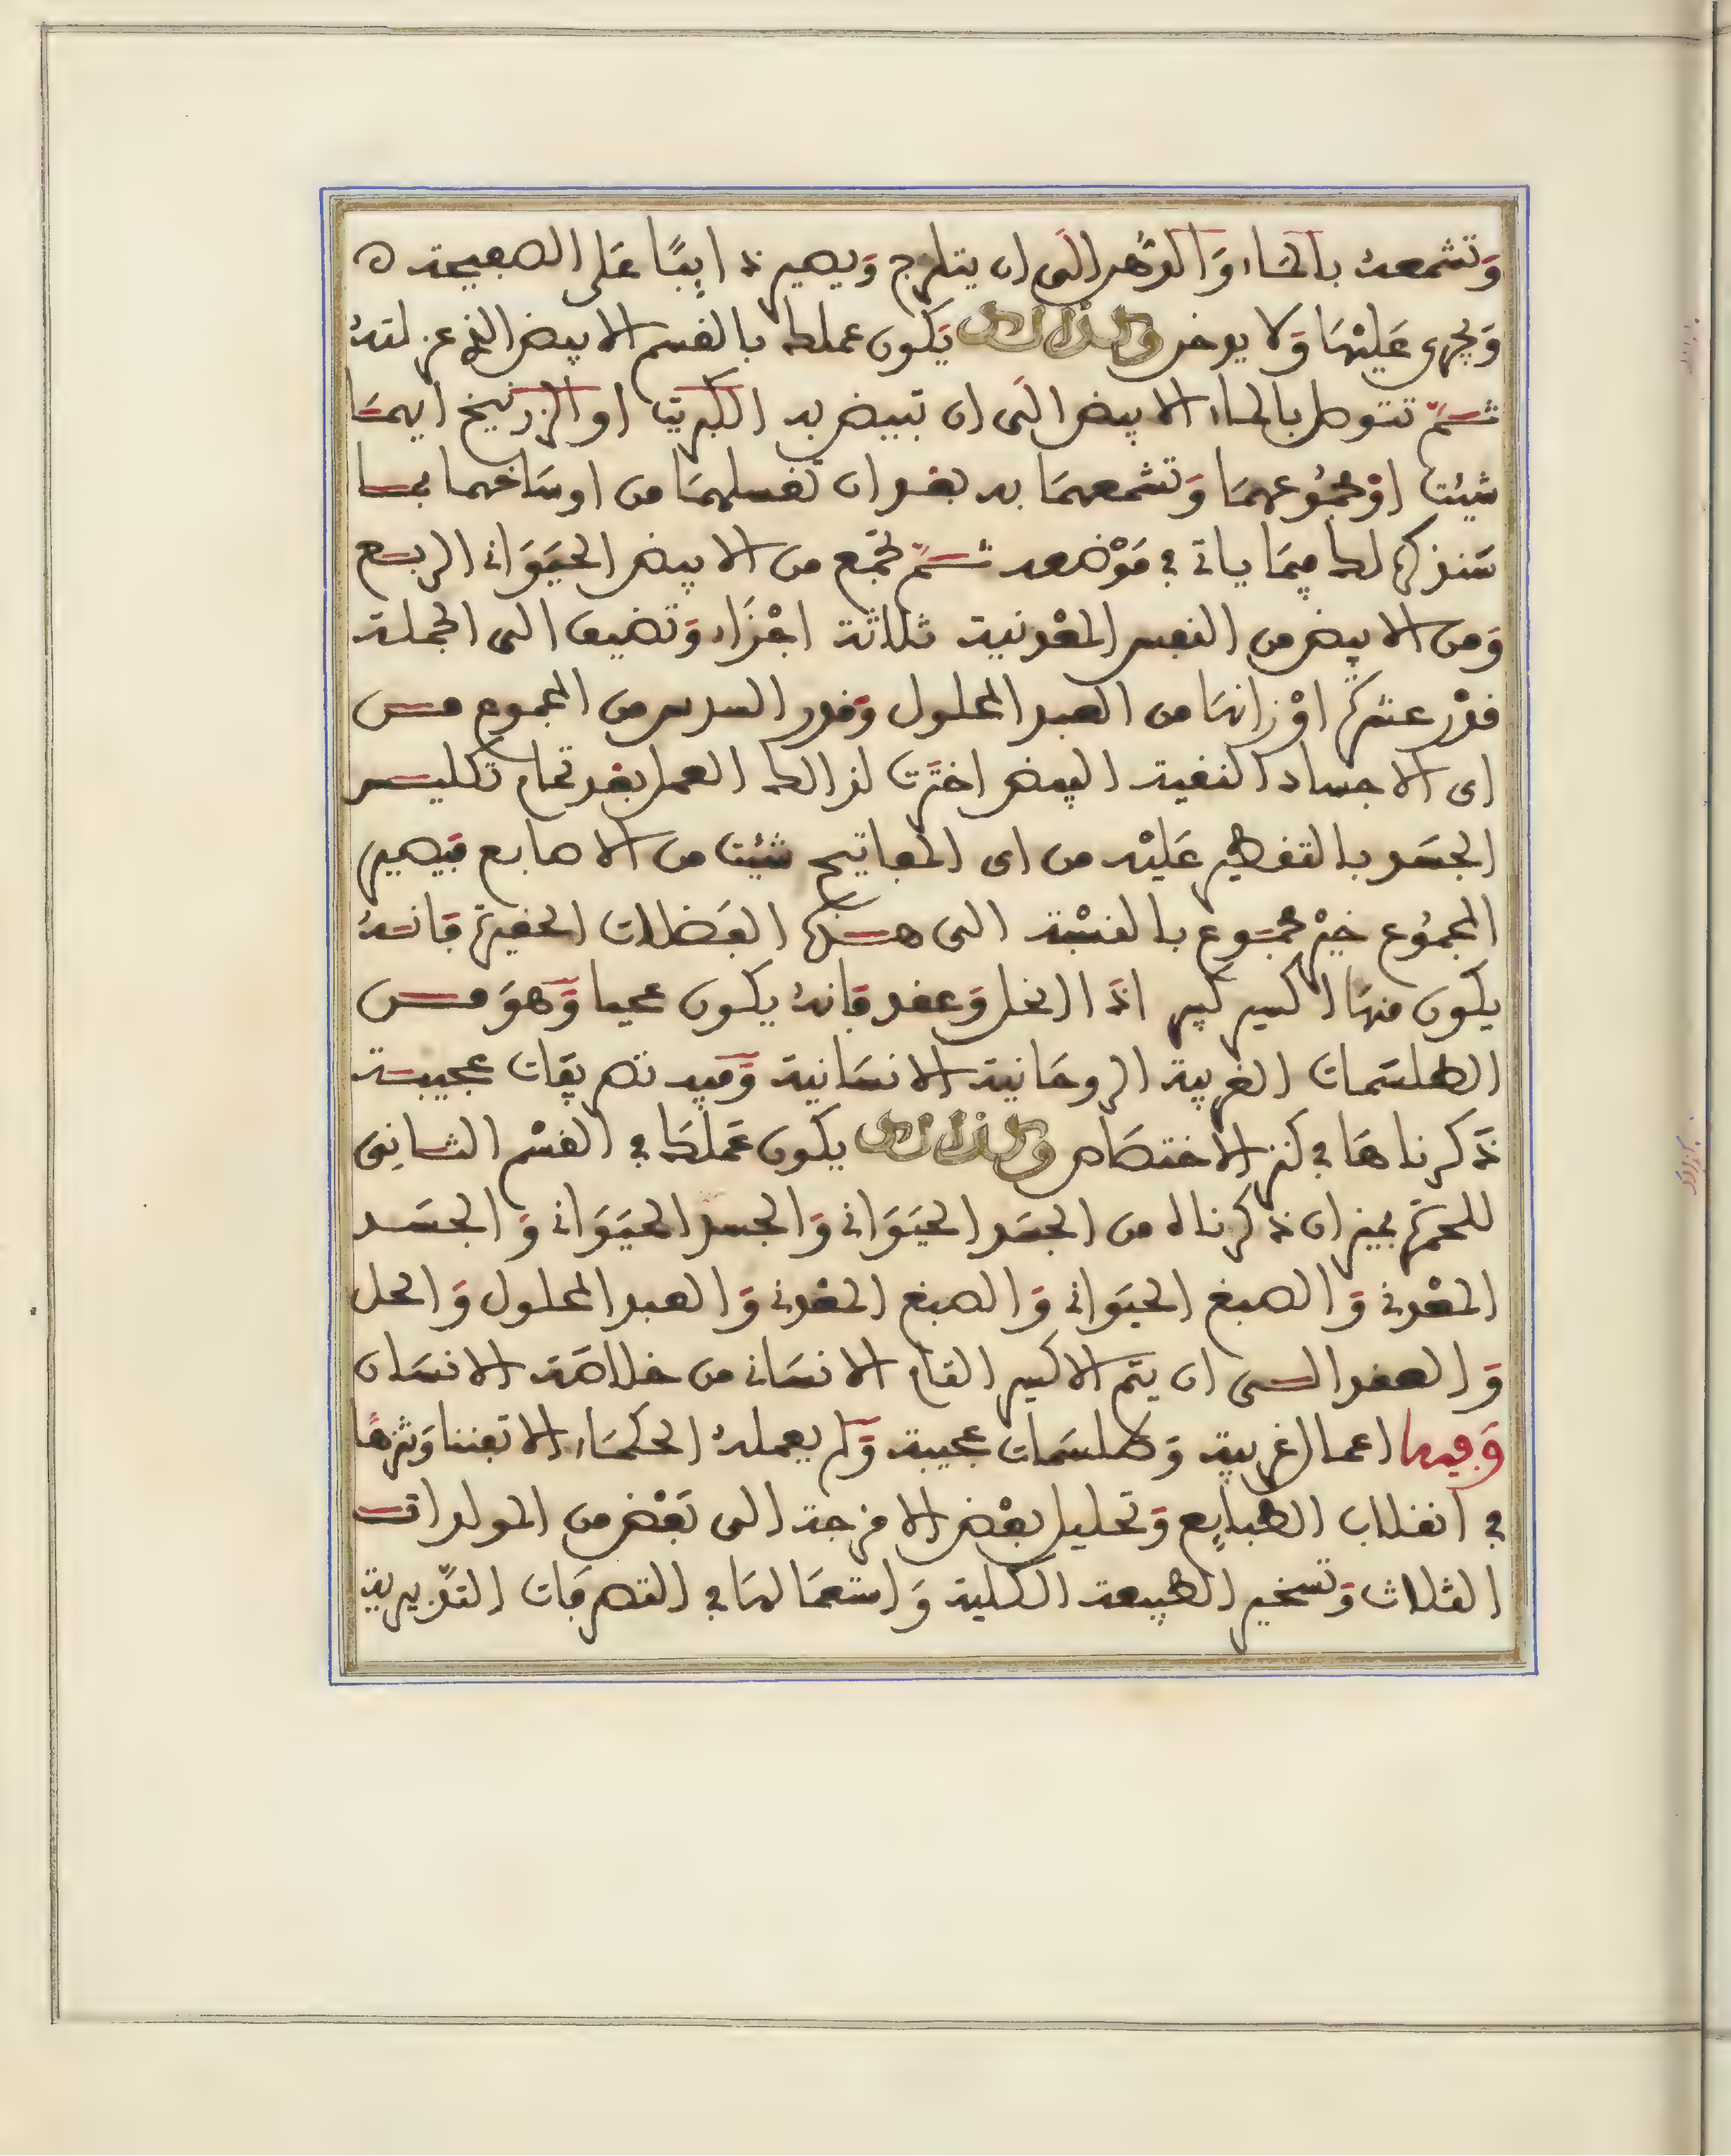 وَتشمعهُ بالمَاء وَالدُّهن الَى ان يتلزج وَيصير ذايبًا عَلى الصفيحة ه
وَيجرى عَليْهَا وَلا يدخن وكذلك يَكون عملك بالقسم الابيض الذى عزلتهُ
ثمّ تتوصل بالماء الابيض الَى ان تبيض به الكبريت او الزرنيخ ايهمَا
شيئت اوْ مجمُوعهمَا وَتشمعهمَا به بعْد ان تغسلهمَا من اوسَاخهما بما
سَنذكره لك فِيمَا ياتى فى مَوْضعه ثمّ تجمَع من الابيض الحيَوَانى الربع
وَمن الابيض من النفس المعْدنية ثلاثة اجْزَاء وَتضيف الى الجملة
قدْر عشرة اوْزانهَا من العبد المحلول وَقدر السدس من المجموع من
اى الاجساد النقية البيض اخترَت لذالك العمل بعْد تمام تكليس
الجسَد بالتقطير عَليْه من اى المفاتيح شيْت من الاصابع فيَصير
المجمُوع خيْر مجمُوع بالنسْبة الى هذه الفضَلات الحقيرة فَانهُ
يكون منهَا اكسير كبير اذَا انحل وَعقد فَانهُ يكون عجيبا وَّهوَ من
الطلسَمات الغريبة الروحَانية الانسَانية وَّفيه تصريفات عجيبة
ذَكرناهَا فى كنز الاختصَاص وكذلك يكون عَملكَ فى القسْم الثانِى
للحمرَة بميزان ذكرناه من الجسَد الحيَوَانى وَالجسد الحيَوَانى وَ الجسَد
المعْدنى وَ الصبغ الحيَوانى وَ الصبغ المعْدنى وَ العبد المحلول وَ الحل
وَ العقد الى ان يتَم الاكسير التام الانسَانى من خلاصَة الانسَان
وَفيها اعمال غريبة وَطلسَمات عجيبة وَّلم يعملهُ الحكمَاء الا تفننا وَتنزهًا
فى انقلاب الطبايع وَتحليل بعْض الامزجة الى بَعْض من المولدات
الثلاث وَتسخير الطبيعة الكلية وَ استعمَالهَا فى التصرفَات التدْبيرية